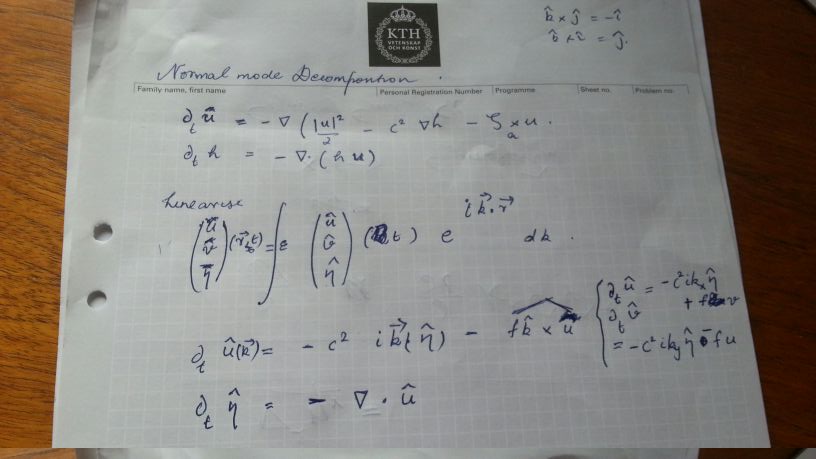 k̂ × ĵ = -î
k̂ × î = ĵ.
KTH
VETENSKAP
OCH KONST
Normal mode Decomposition .
Family name, first name Personal Registration Number Programme Sheet no. Problem no.
∂_t u = - ∇ ( |u|²/2 - c² ∇h - ζ_a × u .
∂_t h = - ∇ · (h u)
Linearise
(ũ ṽ η̃) (r⃗, t) = ∫ (û v̂ η̂) (t) e^{i k⃗·r⃗} dk .
∂_t û(k⃗) = - c² i k⃗ (η̂) - f k̂ × u
{ ∂_t û = - c² i k_x η̂ + f v
∂_t v̂ = - c² i k_y η̂ - f u
∂_t η̂ = - ∇ · û